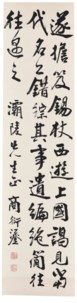 遂擔笈錫杖西遊上國謁見當
代名公錯綜其事遺編絕簡往
往遇之 灞陵先生正 商衍鎏